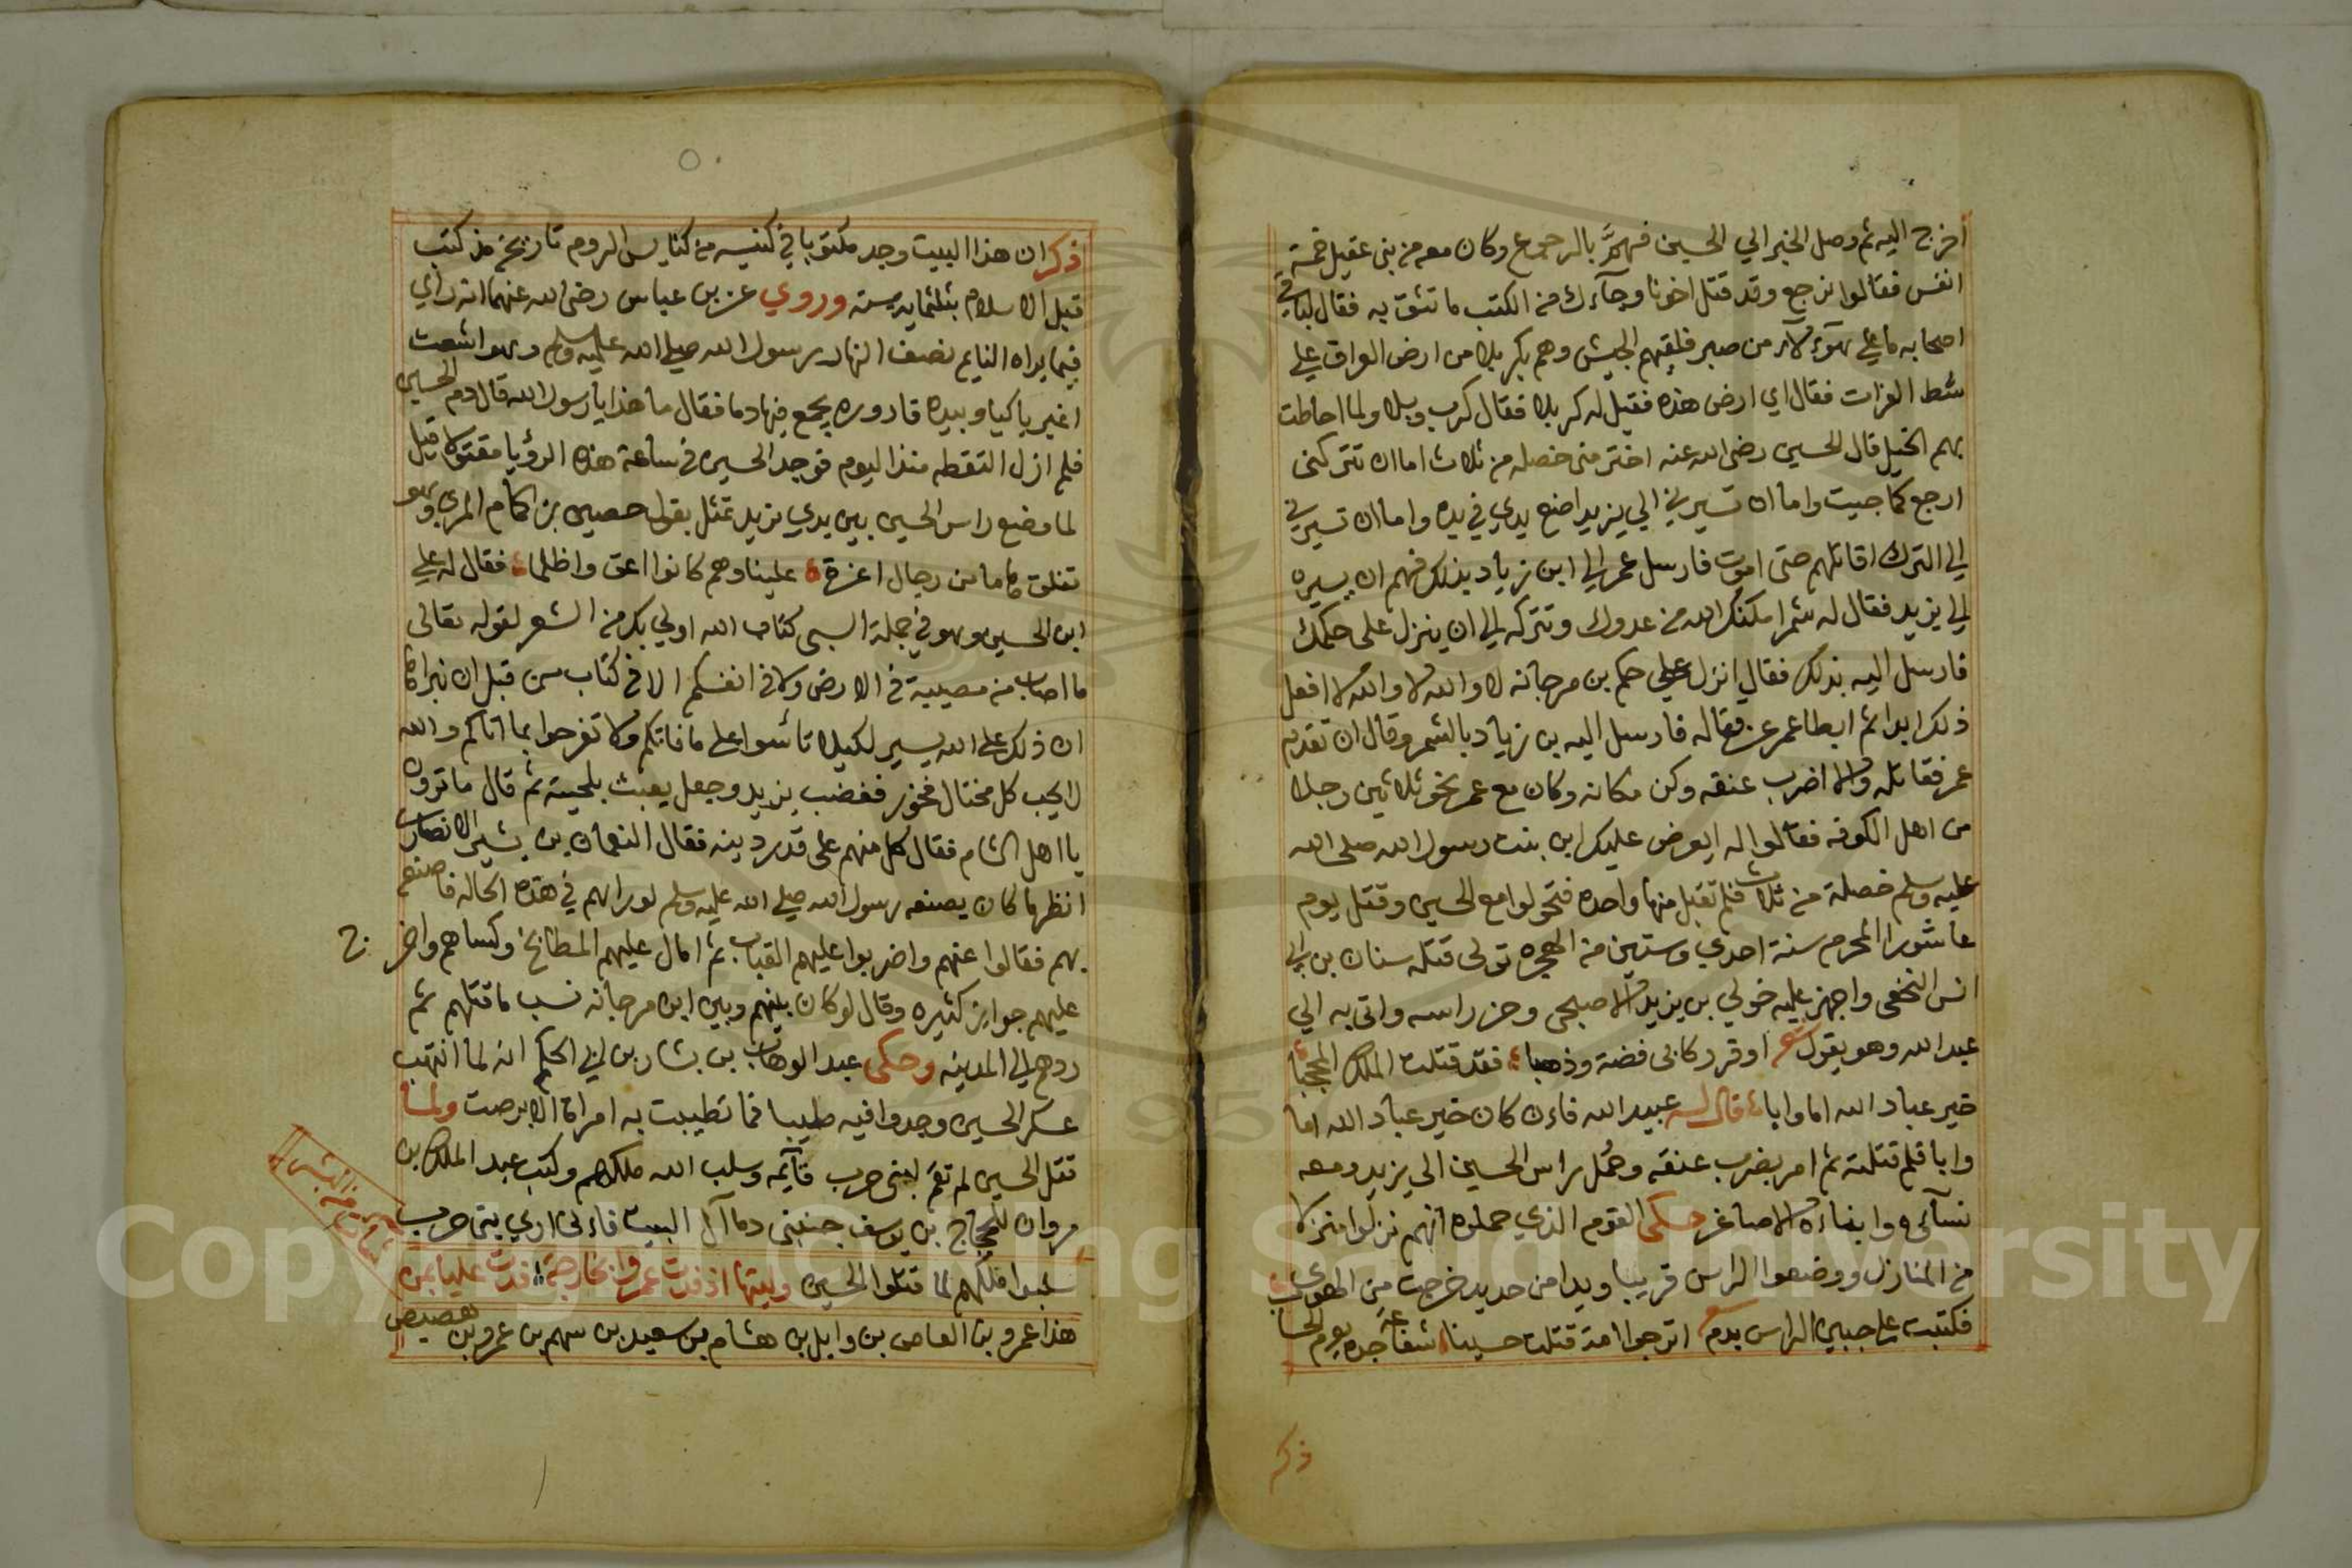 اخرج اليه ثم وصل الخبر الي الحسين فهمَّ بالرجوع وكان معه من بنى عقيل خمسة
انفس فقالوا نرجع وقد قتل اخونا وجآءك من الكتب ما تثق به فقال لباقي
اصحابه ما علي هؤلآء من صبر فلقيهم الجيش وهم بكربلا من ارض العراق علي
شط الفرات فقال اي ارض هذه فقيل له كربلا فقال كرب وبلا ولما احاطت
بهم الخيل قال الحسين رضى الله عنه اختر منى خصله من ثلاث اما ان تتركنى
ارجع كما جيت واما ان تسيرني الي يزيد اضع يدي في يده واما ان تسيرني
الي الترك اقاتلهم حتى اموت فارسل عمر الي ابن زياد بذلك فهم ان يسيره
الي يزيد فقال له شمر امكنك الله من عدوك وتتركه الي ان ينزل على حكمك
فارسل اليه بذلك فقال انزل علي حكم بن مرجانه لا والله لا والله لا افعل
ذلك ابدا ثم ابطا عمر عن قتاله فارسل اليه بن زياد بالشمر وقال ان تقدم
عمر فقاتله والا اضرب عنقه وكن مكانه وكان مع عمر نحو ثلاثين رجلا
من اهل الكوفه فقالوا له ايعرض عليك ابن بنت رسول الله صلى الله
عليه وسلم خصلة من ثلاث فلم تقبل منها واحده فتحولوا مع الحسين وقتل يوم
عاشورا المحرم سنة احدي وستين من الهجره تولى قتله سنان بن ابي
انس النخعى واجهز عليه خولي بن يزيد الاصبحى وحز راسه واتى به الي
عبد الله وهو يقول شعر اوقر ركابى فضة وذهبا فقد قتلت الملك المحجبا
خير عباد الله اما وابا قال له عبيد الله فاءن كان خير عباد الله اما
وابا فلم قتلته ثم امر بضرب عنقه وحُمل راس الحسين الى يزيد ومعه
نسآئه وابناءه الاصاغر حكى القوم الذي حملوه انهم نزلوا منزلا
من المنازل ووضعوا الراس قريبا ويدا من حديد خرجت من الهوي
فكتبت علي جبين الراس بدم شعر اترجوا امة قتلت حسينا شفاعة جده يوم الحساب
ذكر
ذكر ان هذا البيت وجد مكتوبا في كنيسه من كنايس الروم تاريخه مذ كتب
قبل الاسلام بثلثمايه سنه وروي عن بن عباس رضى الله عنهما انه راي
فيما يراه النايم نصف النهار رسول الله صلي الله عليه وسلم وهو اشعت
اغبر باكيا وبيده قاروره يجمع فيها دما فقال ما هذا يارسول الله قال دم الحسين
فلم ازل التقطه منذ اليوم فوجد الحسين في ساعة هذه الرؤيا مقتولا قيل
لما وضع راس الحسين بين يدي يزيد تمثل بقول حصين بن الحمام المري وهو
نفلق هاما من رجال اعزة علينا وهم كانوا اعق واظلما فقال له علي
ابن الحسين وهو في جملة السبى كتاب الله اولي بك من الشعر لقوله تعالى
ما اصاب من مصيبة في الارض ولا في انفسكم الا في كتاب من قبل ان نبراها
ان ذلك على الله يسير لكيلا تأسوا على ما فاتكم ولا تفرحوا بما اتاكم والله
لا يحب كل مختال فخور فغضب يزيد وجعل يعبث بلحيته ثم قال ما ترون
يا اهل الشام فقال كل منهم على قدر دينه فقال النعمان بن بشير الانصاري
انظر ما كان يصنعه رسول الله صلي الله عليه وسلم لو راهم في هذه الحاله فاصنعه
بهم فقالوا عنهم واضربوا عليهم القباب ثم امال عليهم المطابخ وكساهم واخرج
عليهم جوايز كثيره وقال لو كان بينهم وبين ابن مرجانه نسب ما قتلهم ثم
ردهم الي المدينه وحكى عبد الوهاب بن بشار بن ابي الحكم انه لما انتهب
عسكر الحسين وجدوا فيه طيبا فما تطيبت به امراة الا برصت ولما
قتل الحسين لم تقم لبنى حرب قآئمه وسلب الله ملكهم وكتب عبد الملك بن
مروان للحجاج بن يوسف جنبنى دما آل البيت فاءنى اري بنى حرب
سلبوا ملكهم لما قتلوا الحسين وليتها اذ فدت عمروا بخارجة فدت عليا بمن
شاءت من البشر
هذا عمرو بن العاص بن وايل بن هشام بن سعيد بن سهم بن عمرو بن هصيص